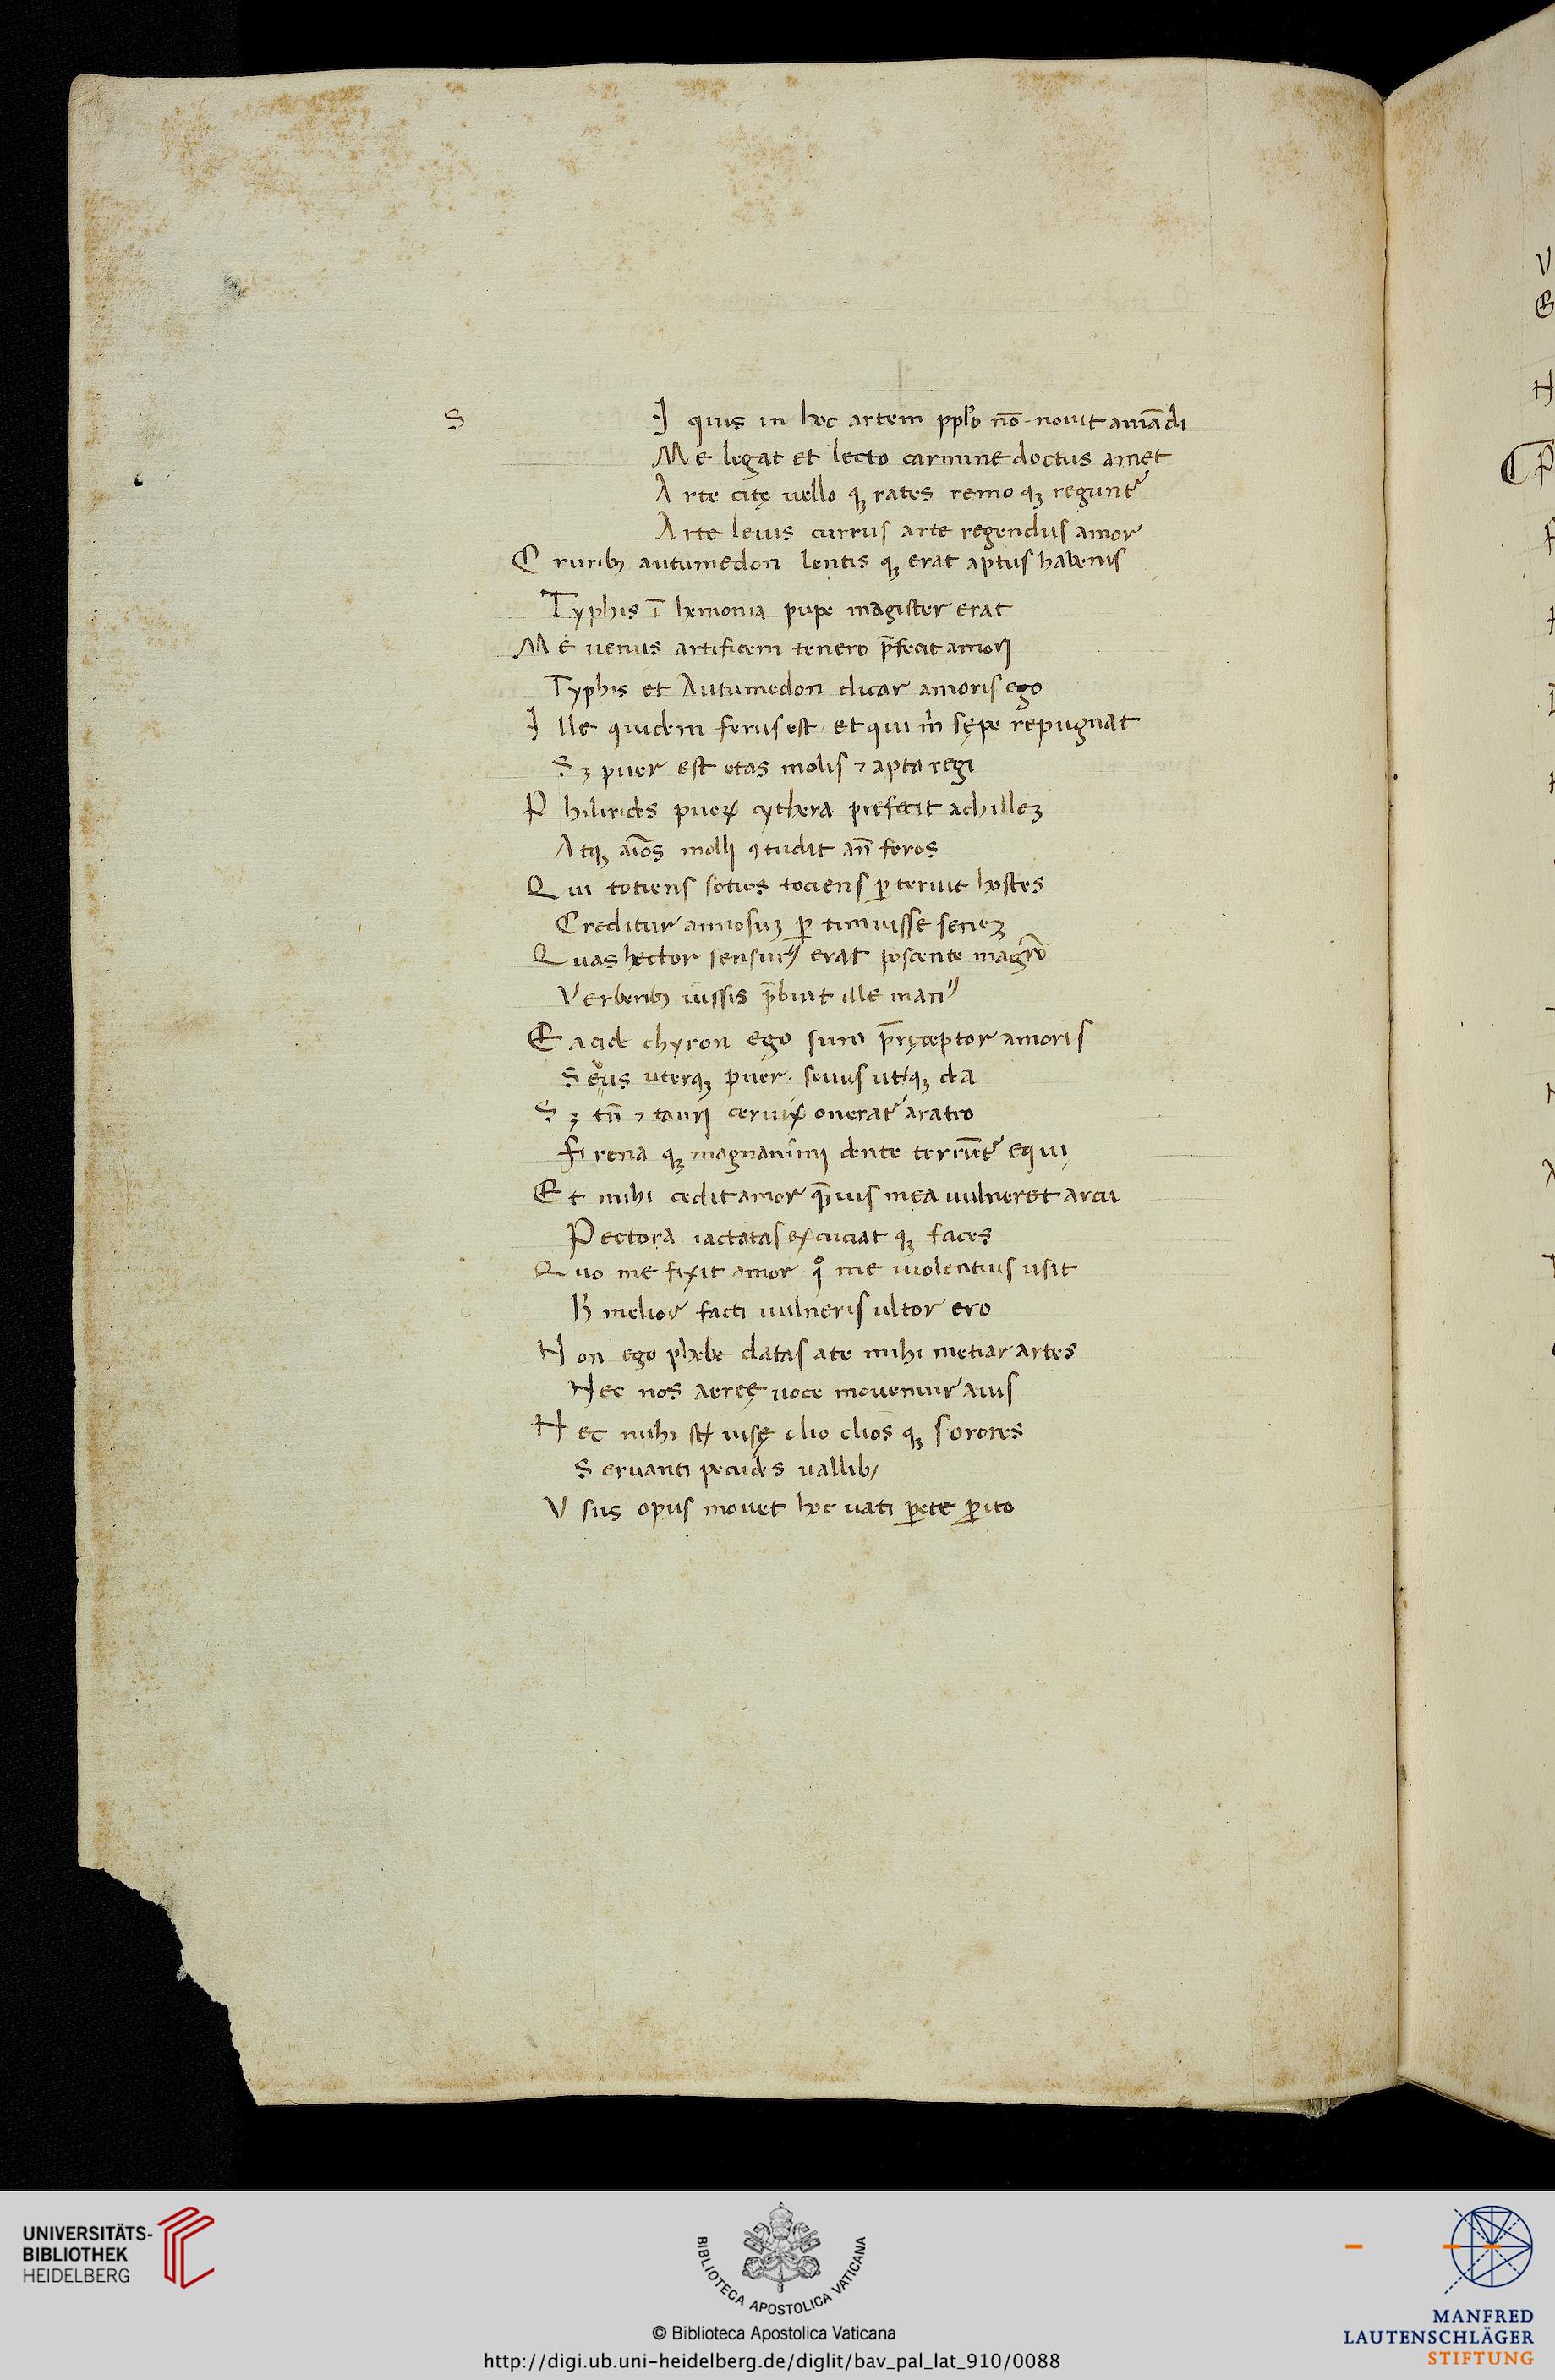 S I quis in hoc artem pplo nō novit amādi
Me legat et lecto carmine doctus amet
Arte citę vello qꝫ rates remo qꝫ regunt᷑
Arte levis currus arte regendus amor
Curribꝫ autumedon lentis qꝫ erat aptus habenis
Typhis ī hemonia pupe magister erat
Me venus artificem tenero p̄fecit amori
Typhis et Autumedon dicar amoris ego
Ille quidem ferus est et qui m̄ sępe repugnat
Sꝫ puer est etas molis ⁊ apta regi
Philirides pueꝝ cythera prefecit achilleꝫ
Atqꝫ aīos molli ꝯtudit an̄ feros
Qui totiens sotios tociens ꝑteruit hostes
Creditur annosuꝫ ꝑtimuisse seneꝫ
Quas hector sensurꝰ erat poscente magr̄o
Verberibꝫ iussis p̄buit ille manꝰ
Eacide chyron ego sum p̄ręceptor amoris
Sevus uterqꝫ puer. sevus utqꝫ dea
Sꝫ tn̄ ⁊ tauri cervix onerat᷑ aratro
Firena qꝫ magnanimi dente terrūt᷑ equi
Et mihi cedit amor q̄vis mea vulneret arcu
Pectora iactatas excuciat qꝫ faces
Quo me fixit amor qͦ me violentius usit
h̄ melior facti vulneris ultor ero
Non ego phebe datas a te mihi metiar artes
Nec nos aereę voce movemur avis
Nec mihi st̄ visę clio clios qꝫ sorores
Servanti pecudes vallibꝫ
Vsus opus movet hoc vati ꝑete ꝑito
UNIVERSITÄTS-
BIBLIOTHEK
HEIDELBERG
BIBLIOTECA APOSTOLICA VATICANA
© Biblioteca Apostolica Vaticana
http://digi.ub.uni-heidelberg.de/diglit/bav_pal_lat_910/0088
MANFRED
LAUTENSCHLÄGER
STIFTUNG